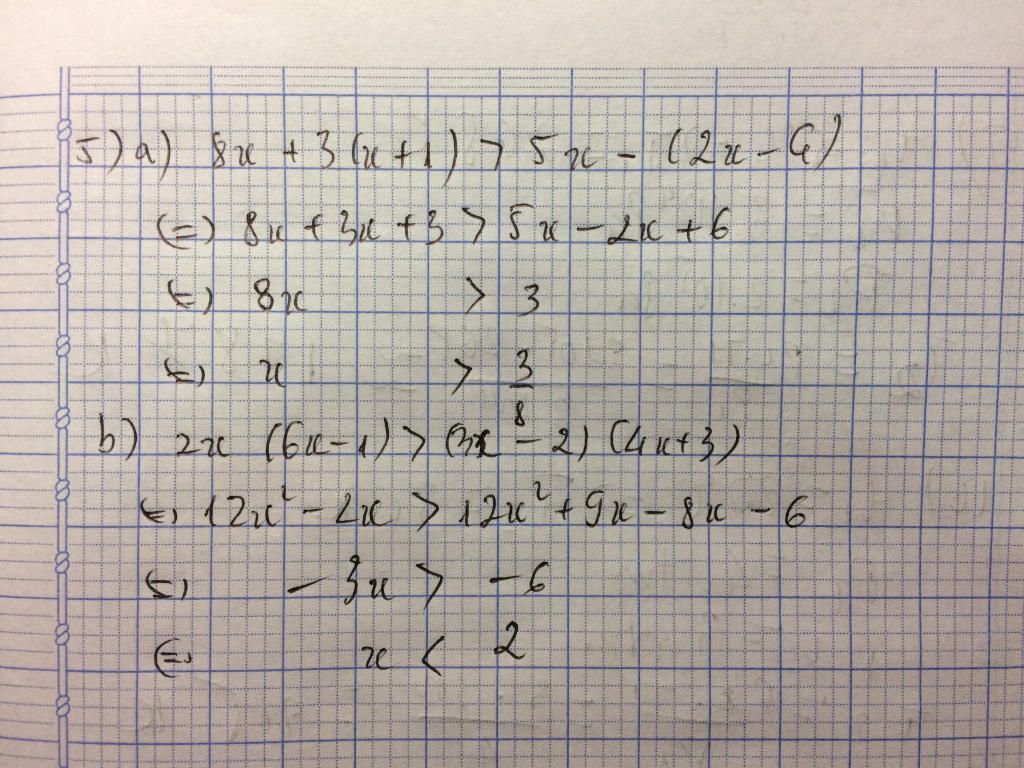 5) a) 8x + 3(x+1) > 5x - (2x - 6)
(=) 8x + 3x + 3 > 5x - 2x + 6
(=) 8x > 3
(=) x > 3/8
b) 2x (6x-1) > (3x - 2) (4x+3)
(=) 12x² - 2x > 12x² + 9x - 8x - 6
(=) - 3x > -6
(=) x < 2